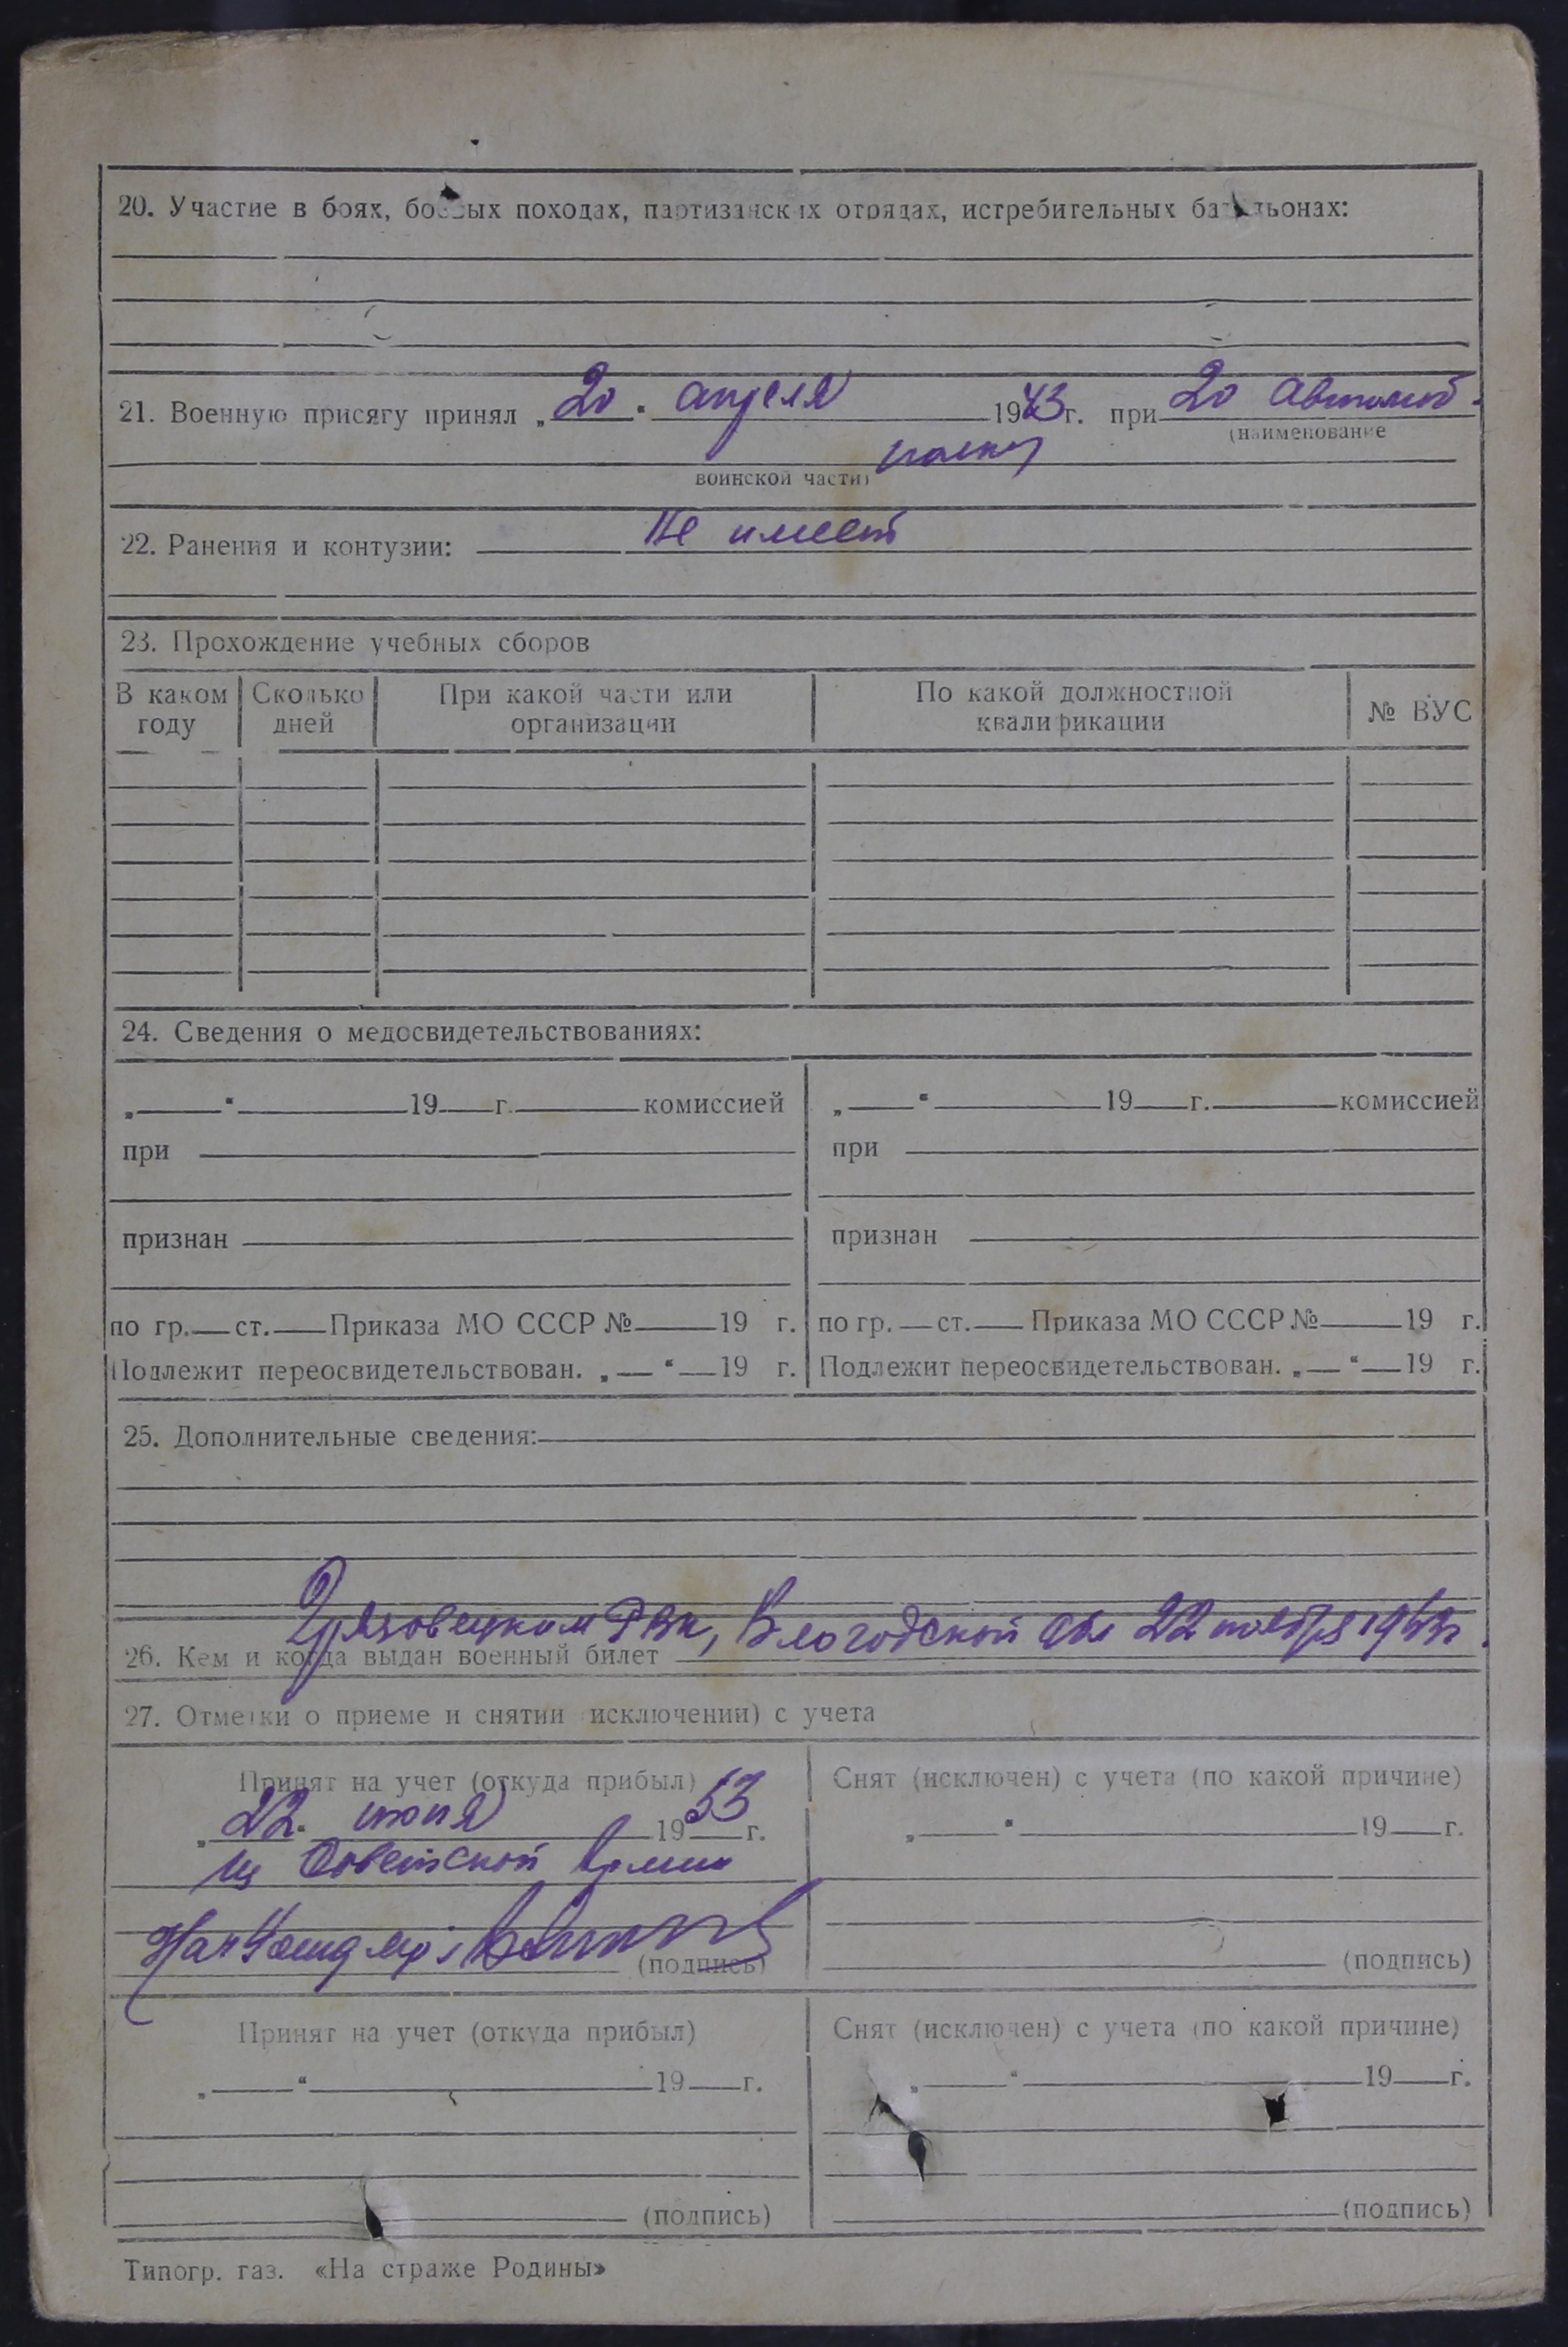 20. Участие в боях, боевых походах, партизанских отрядах, истребительных батальонах:
21. Военную присягу принял „20“ апреля 1943 г. при 20 автомоб.
(наименование
полку
воинской части)
22. Ранения и контузии: Не имеет
23. Прохождение учебных сборов
В каком году Сколько дней При какой части или организации По какой должностной квалификации № ВУС
24. Сведения о медосвидетельствованиях:
„ “ 19 г. комиссией „ “ 19 г. комиссией
при при
признан признан
по гр. ст. Приказа МО СССР № 19 г. по гр. ст. Приказа МО СССР № 19 г.
Подлежит переосвидетельствован. „ “ 19 г. Подлежит переосвидетельствован. „ “ 19 г.
25. Дополнительные сведения:
Грязовецким РВК, Вологодской обл 22 ноября
26. Кем и когда выдан военный билет
27. Отметки о приеме и снятии исключении) с учета
Принят на учет (откуда прибыл) Снят (исключен) с учета (по какой причине)
„22“ июня 1953 г. „ “ 19 г.
из Советской Армии
Нач
(подпись) (подпись)
Принят на учет (откуда прибыл) Снят (исключен) с учета (по какой причине)
„ “ 19 г. „ “ 19 г.
(подпись) (подпись)
Типогр. газ. «На страже Родины»